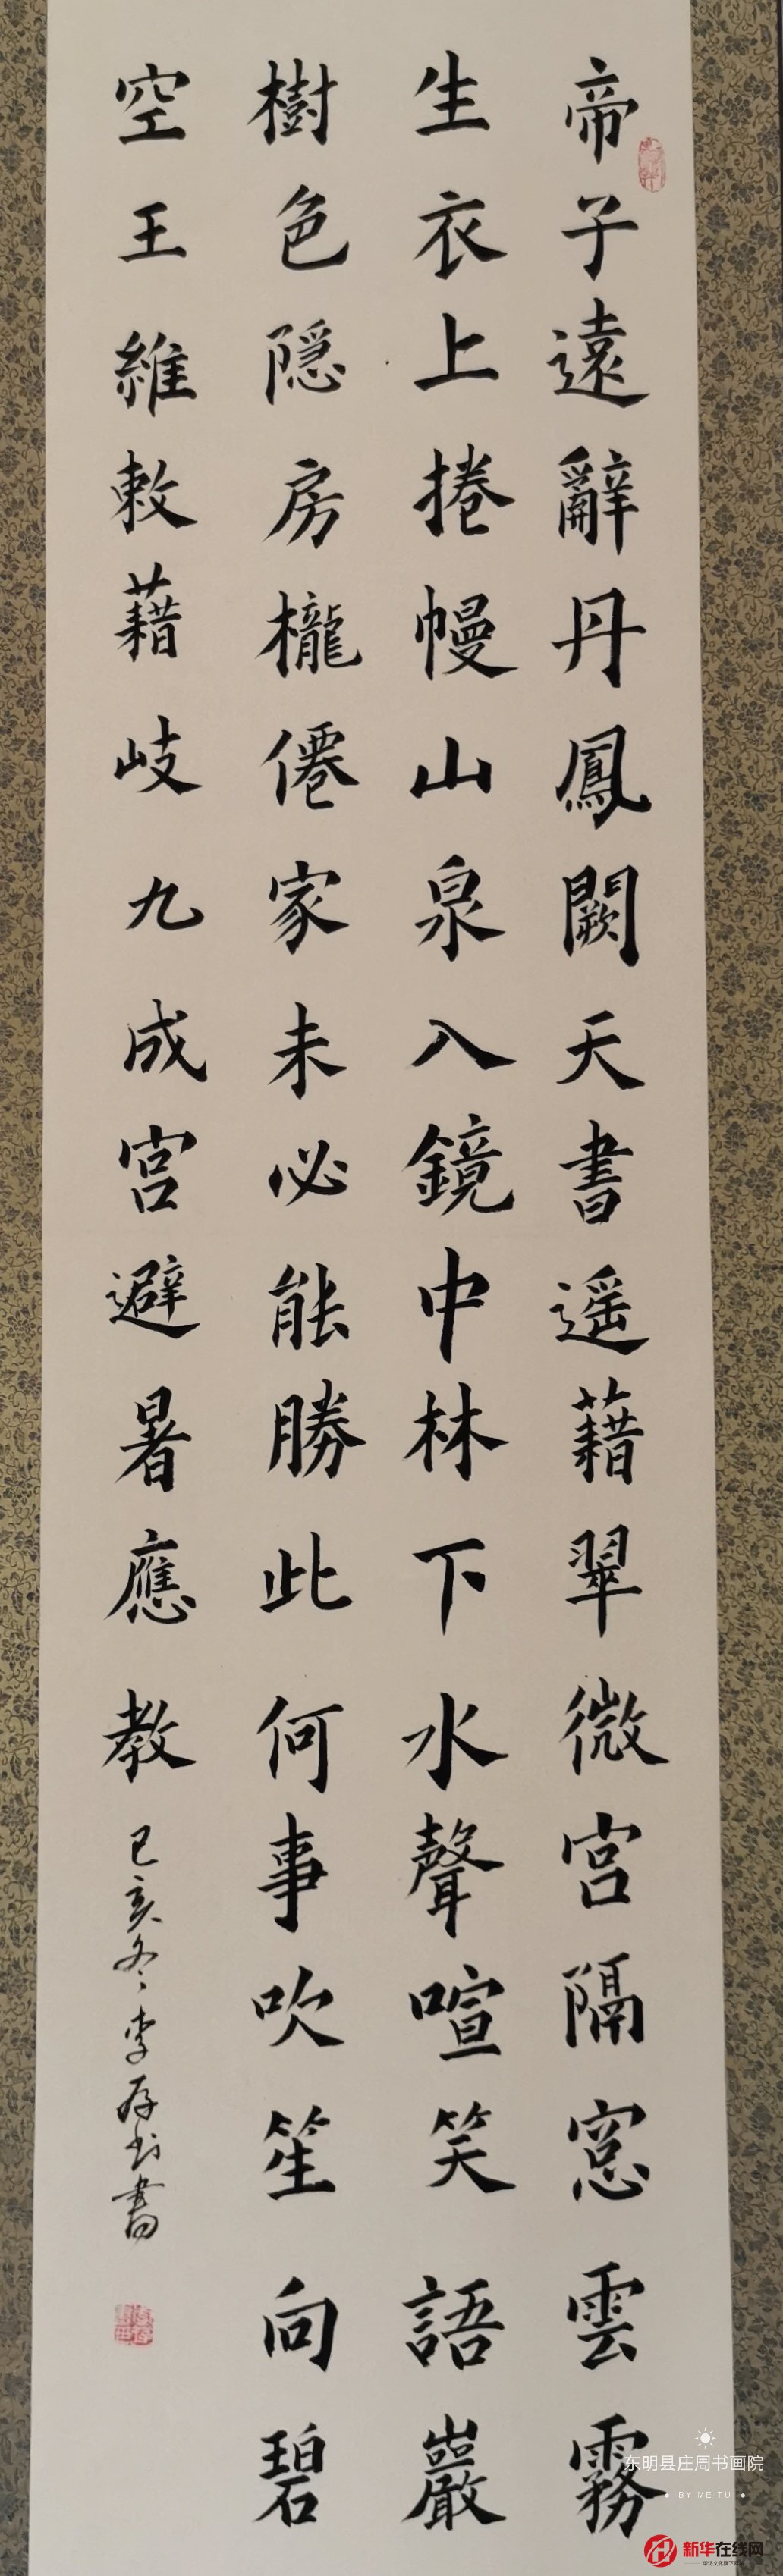 帝子遠辭丹鳳闕天書遥藉翠微宮隔窓雲霧
生衣上捲幔山泉入鏡中林下水聲喧笑語巖
樹色隱房櫳僊家未必能勝此何事吹笙向碧
空王維敕藉岐九成宮避暑應教
己亥冬李存書
东明县庄周书画院
BY MEITU
新华在线网